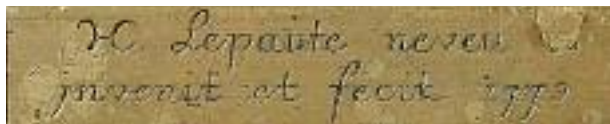 H Lepaute neveu
invenit et fecit 1772